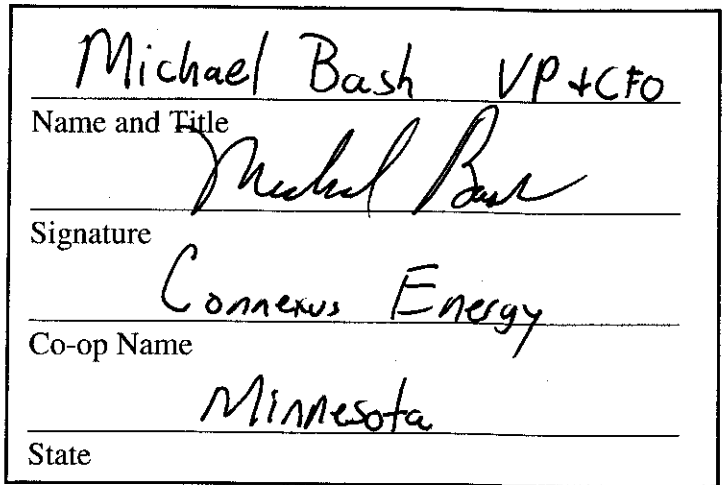 Michael Bash VP + CFO
Name and Title
Michael Bash
Signature
Connexus Energy
Co-op Name
Minnesota
State